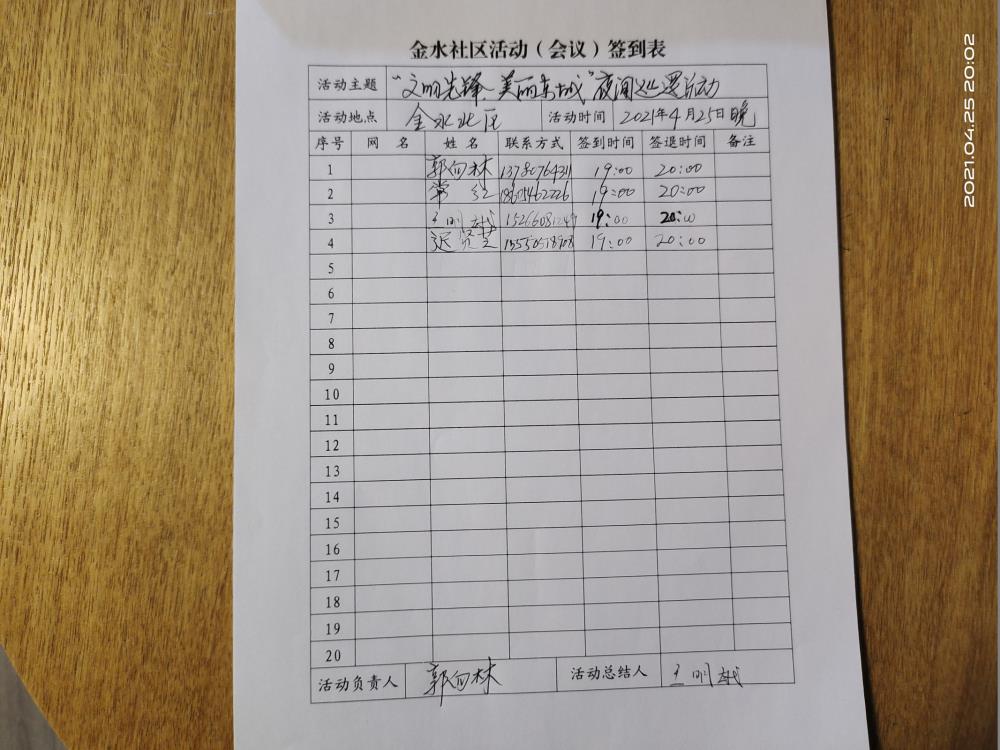 金水社区活动（会议）签到表
活动主题 “文明先锋、美丽东城”夜间巡逻活动
活动地点 金水社区 活动时间 2021年4月25日晚
序号 网 名 姓 名 联系方式 签到时间 签退时间 备注
1 郭向林 19:00 20:00
2 常红 19:00 20:00
3 王明 19:00 20:00
4 迟贤芝 19:00 20:00
5
6
7
8
9
10
11
12
13
14
15
16
17
18
19
20
活动负责人 郭向林 活动总结人 王明
2021.04.25 20:02